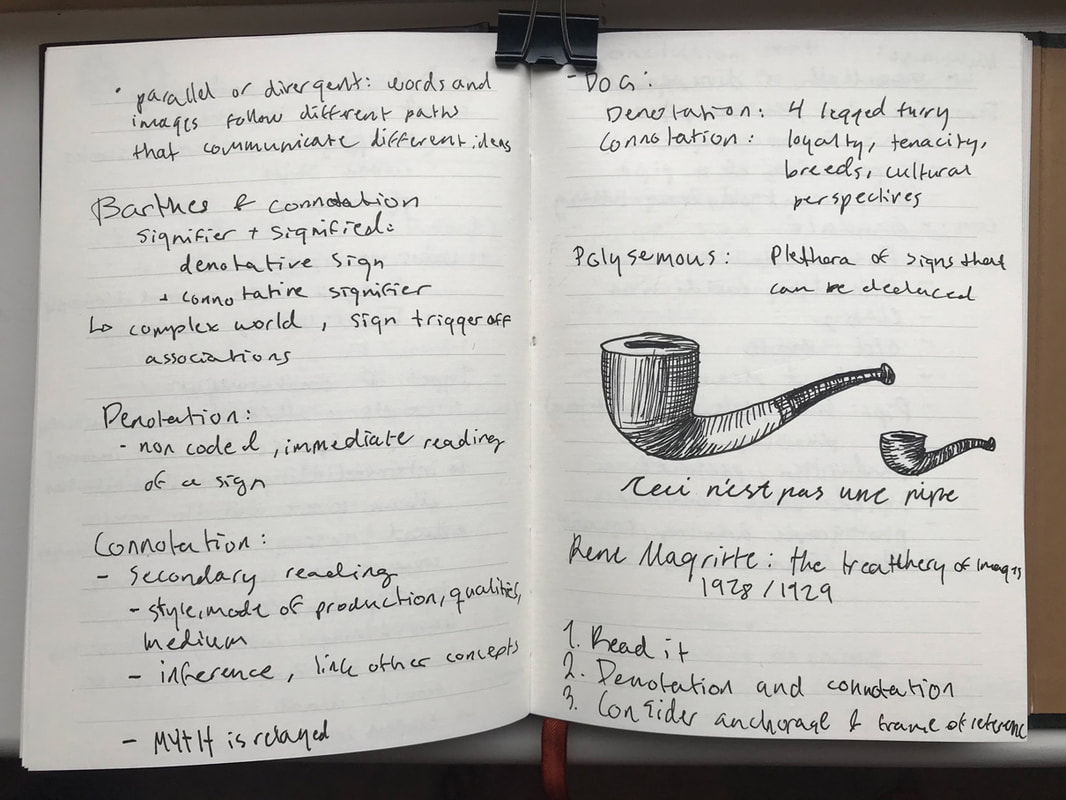 • parallel or divergent: words and
images follow different paths
that communicate different ideas
Barthes & connotation
signifier + signified:
denotative sign
+ connotative signifier
↳ complex world, sign trigger off
associations
Denotation:
- non coded, immediate reading
of a sign
Connotation:
- Secondary reading
- style, mode of production, qualities,
medium
- inference, link other concepts
- MYTH is relayed
- DOG:
Denotation: 4 legged furry
Connotation: loyalty, tenacity,
breeds, cultural
perspectives
Polysemous: Plethora of signs that
can be deduced
Ceci n'est pas une pipe
Rene Magritte: the treatchery of images
1928/1929
1. Read it
2. Denotation and connotation
3. Consider anchorage & frame of reference